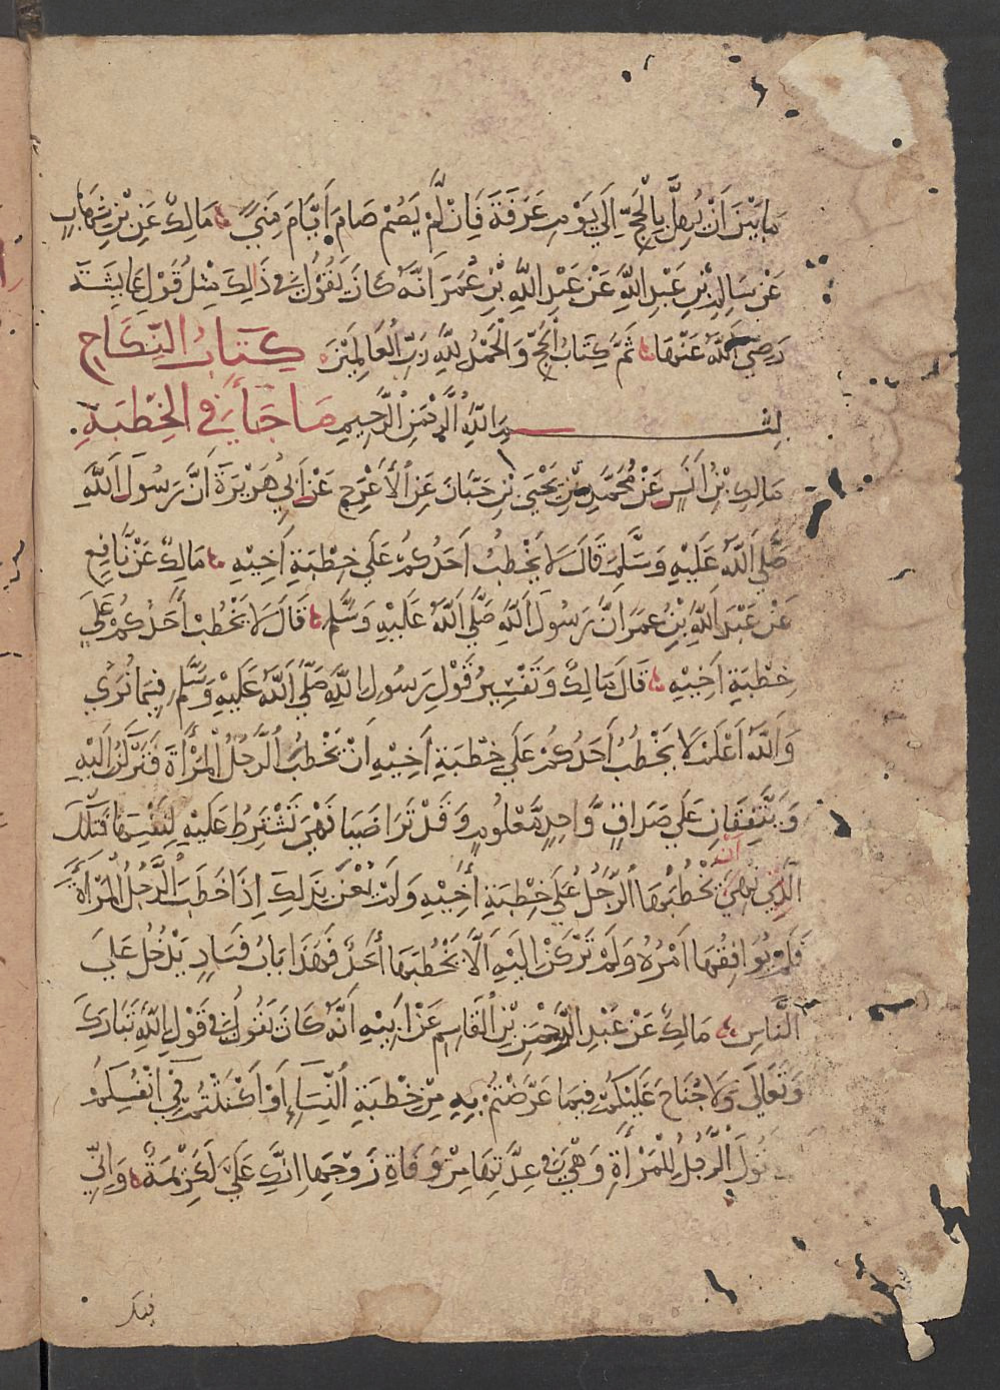 مَا بَيْنَ اَنْ يُهِلَّ بِالْحَجِّ اِلَي يَوْمِ عَرَفَةَ فَاِنْ لَّمْ يَصُمْ صَامَ اَيَّامَ مِنًي مَالِكٌ عَنِ بْنِ شِهَابٍ
عَنْ سَالِمِ بْنِ عَبْدِ اللَّهِ عَنْ عَبْدِ اللَّهِ بْنِ عُمَرَ اَنَّهُ كَانَ يَقُولُ فِي ذَالِكَ مِثْلَ قَوْلِ عَايِشَةَ
رَضِيَ اَللَّهُ عَنْهَا ثَمَّ كِتَابُ الْحَجِّ وَالْحَمْدُ لِلَّهِ رَبِّ الْعَالَمِينَ كِتَابُ النِّكَاحِ
بِسْمِ اللَّهِ الرَّحْمَنِ الرَّحِيمِ مَا جَاءَ فِي الْخِطْبَةِ
مَالِكِ بْنُ اَنَسٍ عَنْ مُحَمَّدِ بْنِ يَحْيَي بْنِ حَبَّانَ عَنِ الْاَعْرَجِ عَنْ اَبِي هُرَيْرَةَ اَنَّ رَسُولَ اَللَّهِ
صَلَّي اَللَّهُ عَلَيْهِ وَسَلَّمَ قَالَ لَا يَخْطُبُ اَحَدُكُمْ عَلَي خِطْبَةِ اَخِيْهِ مَالِكٌ عَنْ نَّافِعٍ
عَنْ عَبْدِ اَللَّهِ بْنِ عُمَرَ اَنَّ رَسُولَ اَللَّهِ صَلَّي اَللَّهُ عَلَيْهِ وَسَلَّمَ قَالَ لَا يَخْطُبْ اَحَدُكُمْ عَلَي
خِطْبَةِ اَخِيْهِ قَالَ مَالِكٌ وَتَفْسِيرُ قَوْلِ رَسُولِ اللَّهِ صَلَّي اَللَّهُ عَلَيْهِ وَسَلَّمَ فِيمَا نُرَي
وَاَللَّهُ اَعْلَمُ لَا يَخْطُبُ اَحَدُكُمْ عَلَي خِطْبَةِ اَخِيْهِ اَنْ يَخْطُبَ اَلرَّجُلُ الْمَرْأَةَ فَتَرْكَنُ اِلَيْهِ
وَيَتَّفِقَانِ عَلَي صَدَاقٍ وَّاحِدٍ مَّعْلُومٍ وَقَدْ تَرَاضَيَا فَهِيَ تَشْتَرِطُ عَلَيْهِ لِنَفْسِهَا فَتِلْكَ
الَّتِي نَهَي اَنْ يَخْطُبَهَا اَلرَّجُلُ عَلَي خِطْبَةِ أَخِيْهِ وَلَمْ يَعْنِ بِذَلِكَ اِذَا خَطَبَ اَلرَّجُلُ الْمَرْأَةَ
فَلَمْ يُوَافِقْهَا اَمْرُهُ وَلَمْ تَرْكَنْ اِلَيْهِ اَلَّا يَخْطُبَهَا أَحَدٌ فَهَذَا بَابُ فَسَادٍ يَدْخُلُ عَلَي
النَّاسِ مَالِكٌ عَنْ عَبْدِ الرَّحْمَنِ بْنِ الْقَاسِمِ عَنْ اَبِيْهِ اَنَّهُ كَانَ يَقُولُ فِي قَوْلِ اللَّهِ تَبَارَكَ
وَتَعَالَي وَلَا جُنَاحَ عَلَيْكُمْ فِيمَا عَرَّضْتُمْ بِهِ مِنْ خِطْبَةِ النِّسَآءِ اَوْ اَكْنَنْتُمْ فِي اَنْفُسِكُمْ
يَقُولَ الرَّجُلُ لِلْمَرْأَةِ وَهْيَ فِي عِدَّتِهَا مِنْ وَفَاةِ زَوْجِهَا اِنَّكِ عَلَيَّ لَكَرِيْمَةٌ وَاِنِّي
فيك